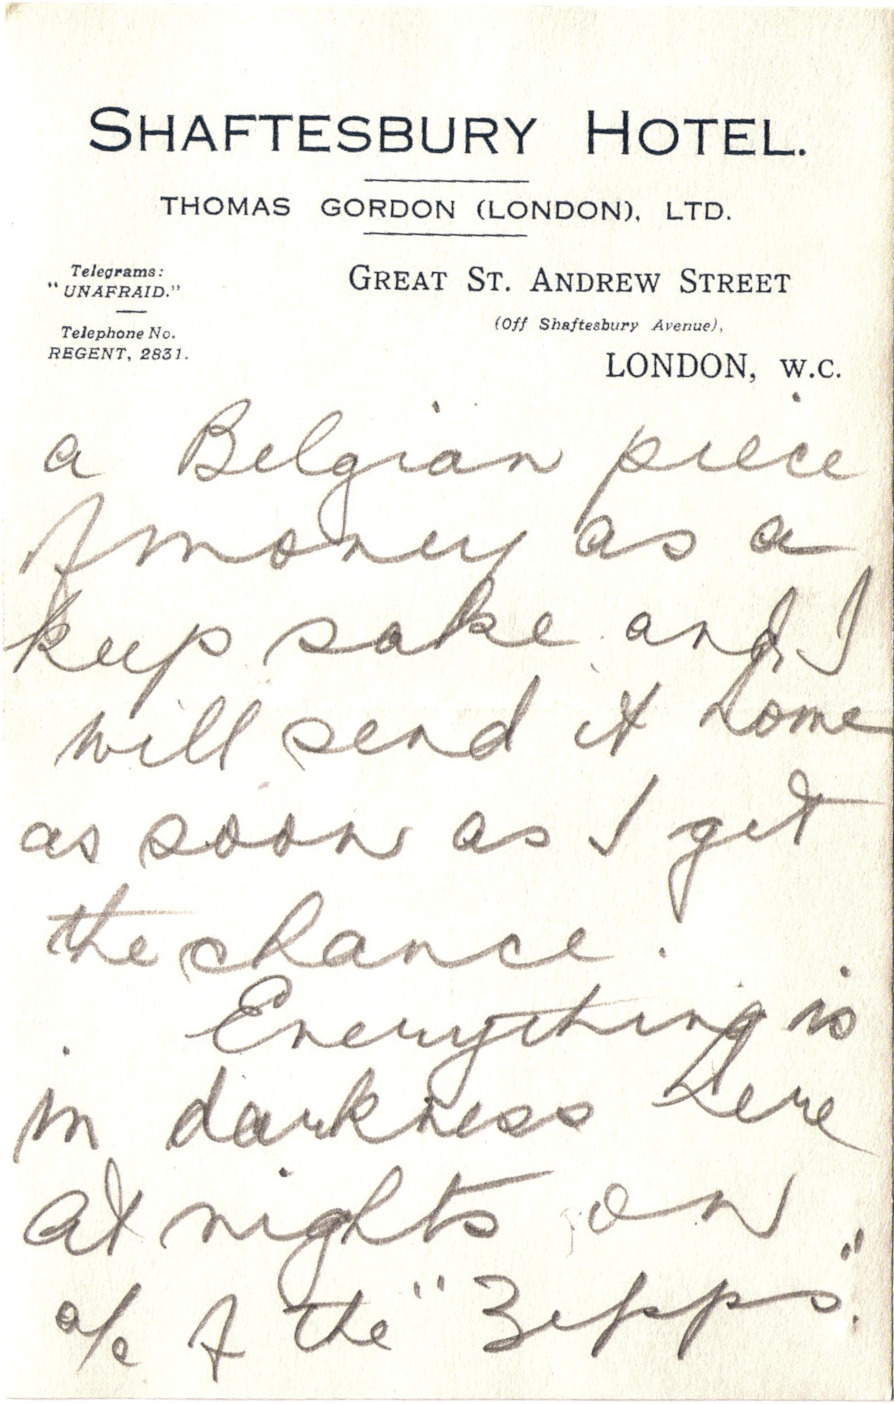 SHAFTESBURY HOTEL.
THOMAS GORDON (LONDON), LTD.
Telegrams:
"UNAFRAID."
Telephone No.
REGENT, 2831.
GREAT ST. ANDREW STREET
(Off Shaftesbury Avenue),
LONDON, W.C.
a Belgian piece
of money as a
keep sake and I
will send it home
as soon as I get
the chance.
Everything is
in darkness here
at nights on
a/c of the "Zepps".